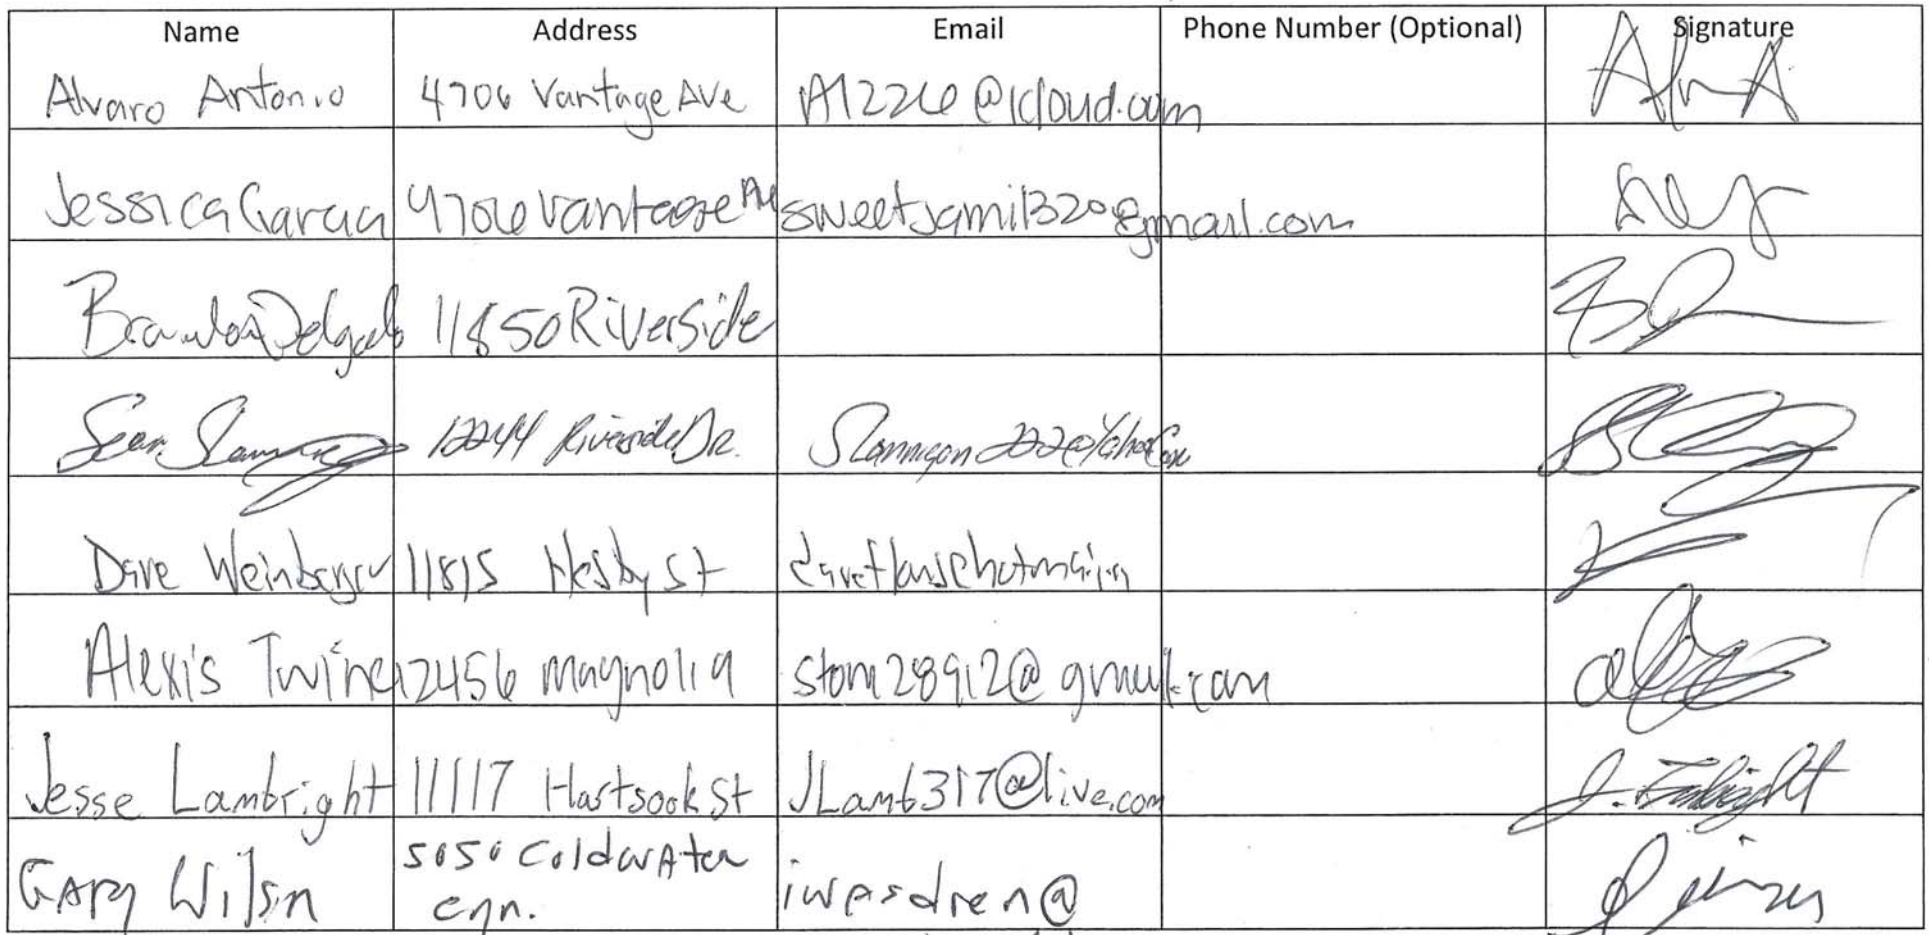 Name Address Email Phone Number (Optional) Signature
Alvaro Antonio 4706 Vantage Ave A1226@icloud.com
Jessica Garcia 4706 Vantage Ave sweetsami1320@gmail.com
Brandon Delgado 11850 Riverside
Sean 12244 Riverside Dr.
Dave Weinberger 11815 Hesby St
Alexis Twine 12456 magnolia stom28912@gmail.com
Jesse Lambright 11117 Hartsook St JLamb317@live.com
Gary Wilson 5050 Coldwater
cyn. iwasdren@